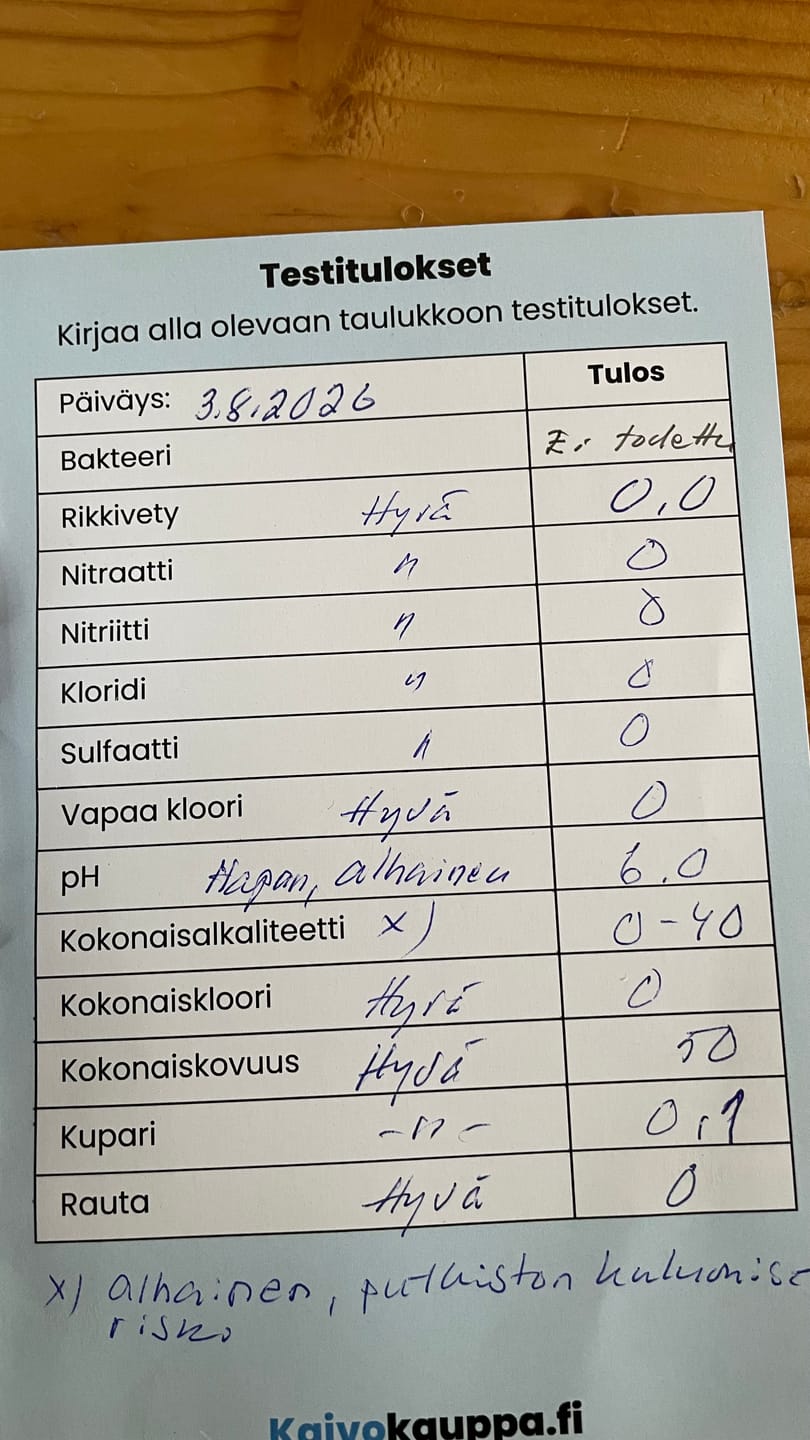 Testitulokset
Kirjaa alla olevaan taulukkoon testitulokset.
Päiväys: 3.8.2026 Tulos
Bakteeri Ei todettu
Rikkivety Hyvä 0,0
Nitraatti " 0
Nitriitti " 0
Kloridi " 0
Sulfaatti " 0
Vapaa kloori Hyvä 0
pH Hapan, alhainen 6.0
Kokonaisalkaliteetti x) 0-40
Kokonaiskloori Hyvä 0
Kokonaiskovuus Hyvä 50
Kupari -"- 0,1
Rauta Hyvä 0
x) alhainen, putkiston kulumise
riski
Kaivokauppa.fi